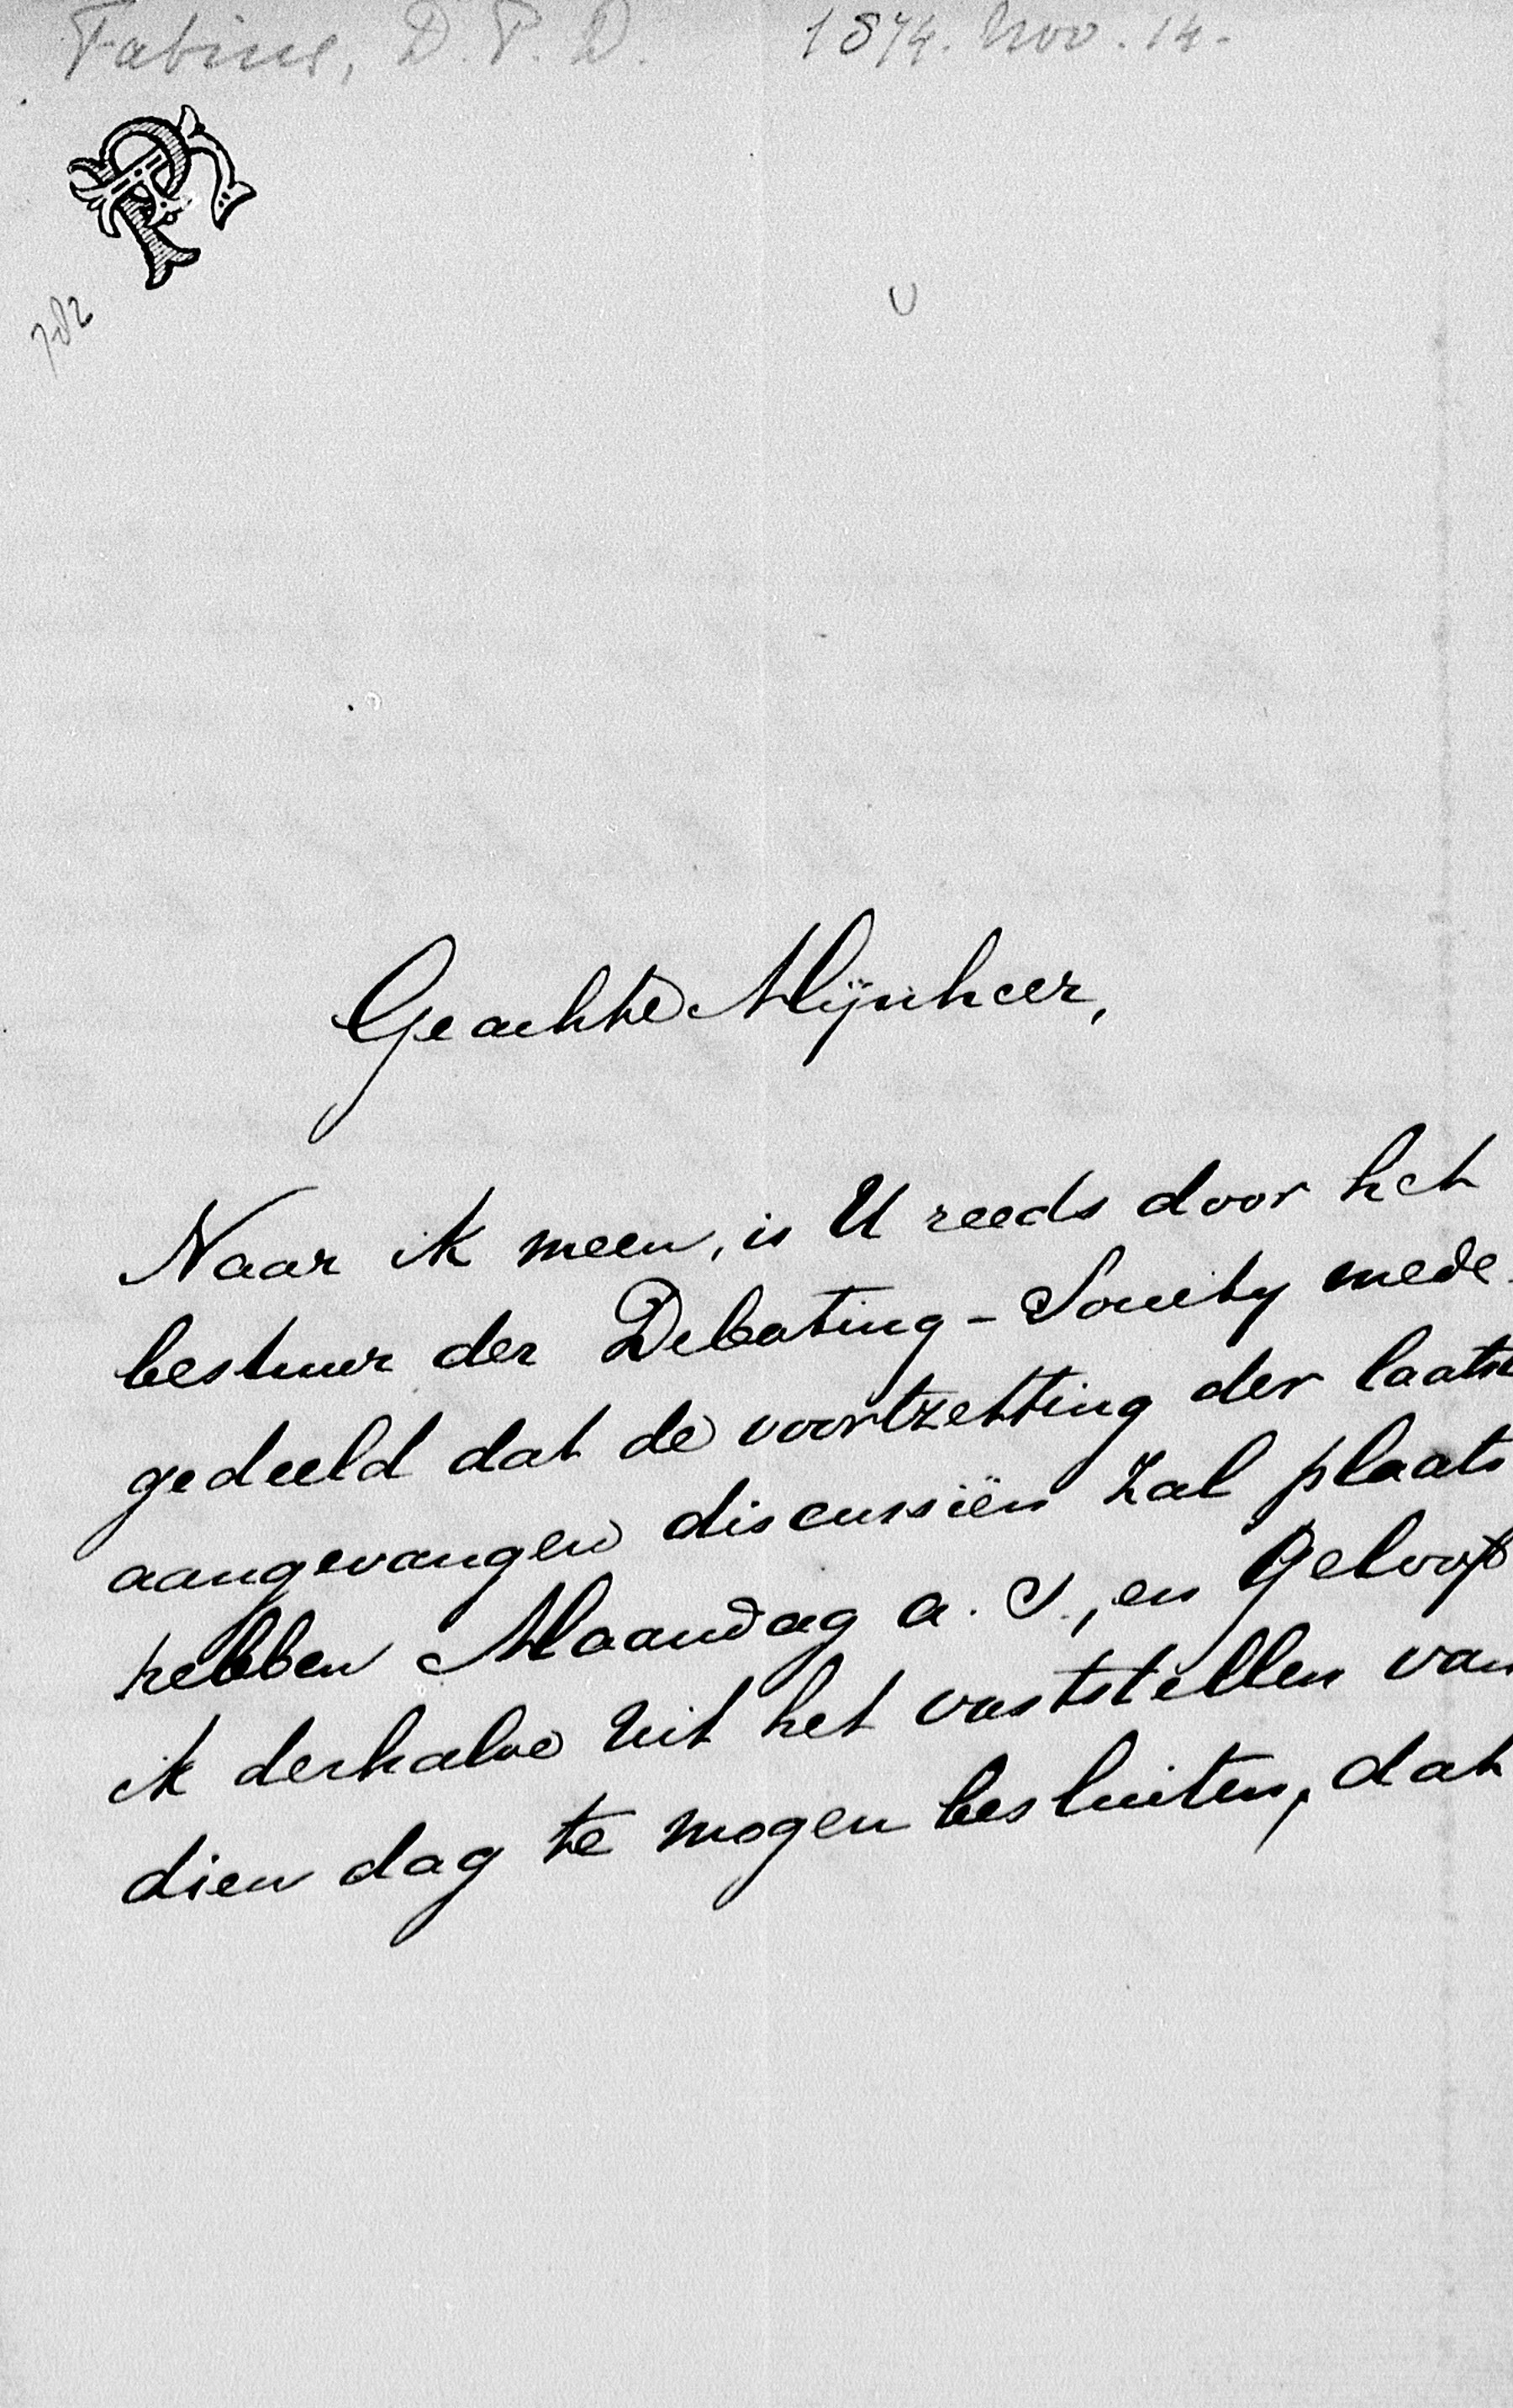 Fabius, D. P. D. 1874. Nov. 14.
782
Geachte Mijnheer,
Naar ik meen, is U reeds door het
bestuur der Debating-Society mede-
gedeeld dat de voortzetting der laatst
aangevangen discussiën zal plaats
hebben Maandag a. s., en geloof
ik derhalve uit het vaststellen van
dien dag te mogen besluiten, dat